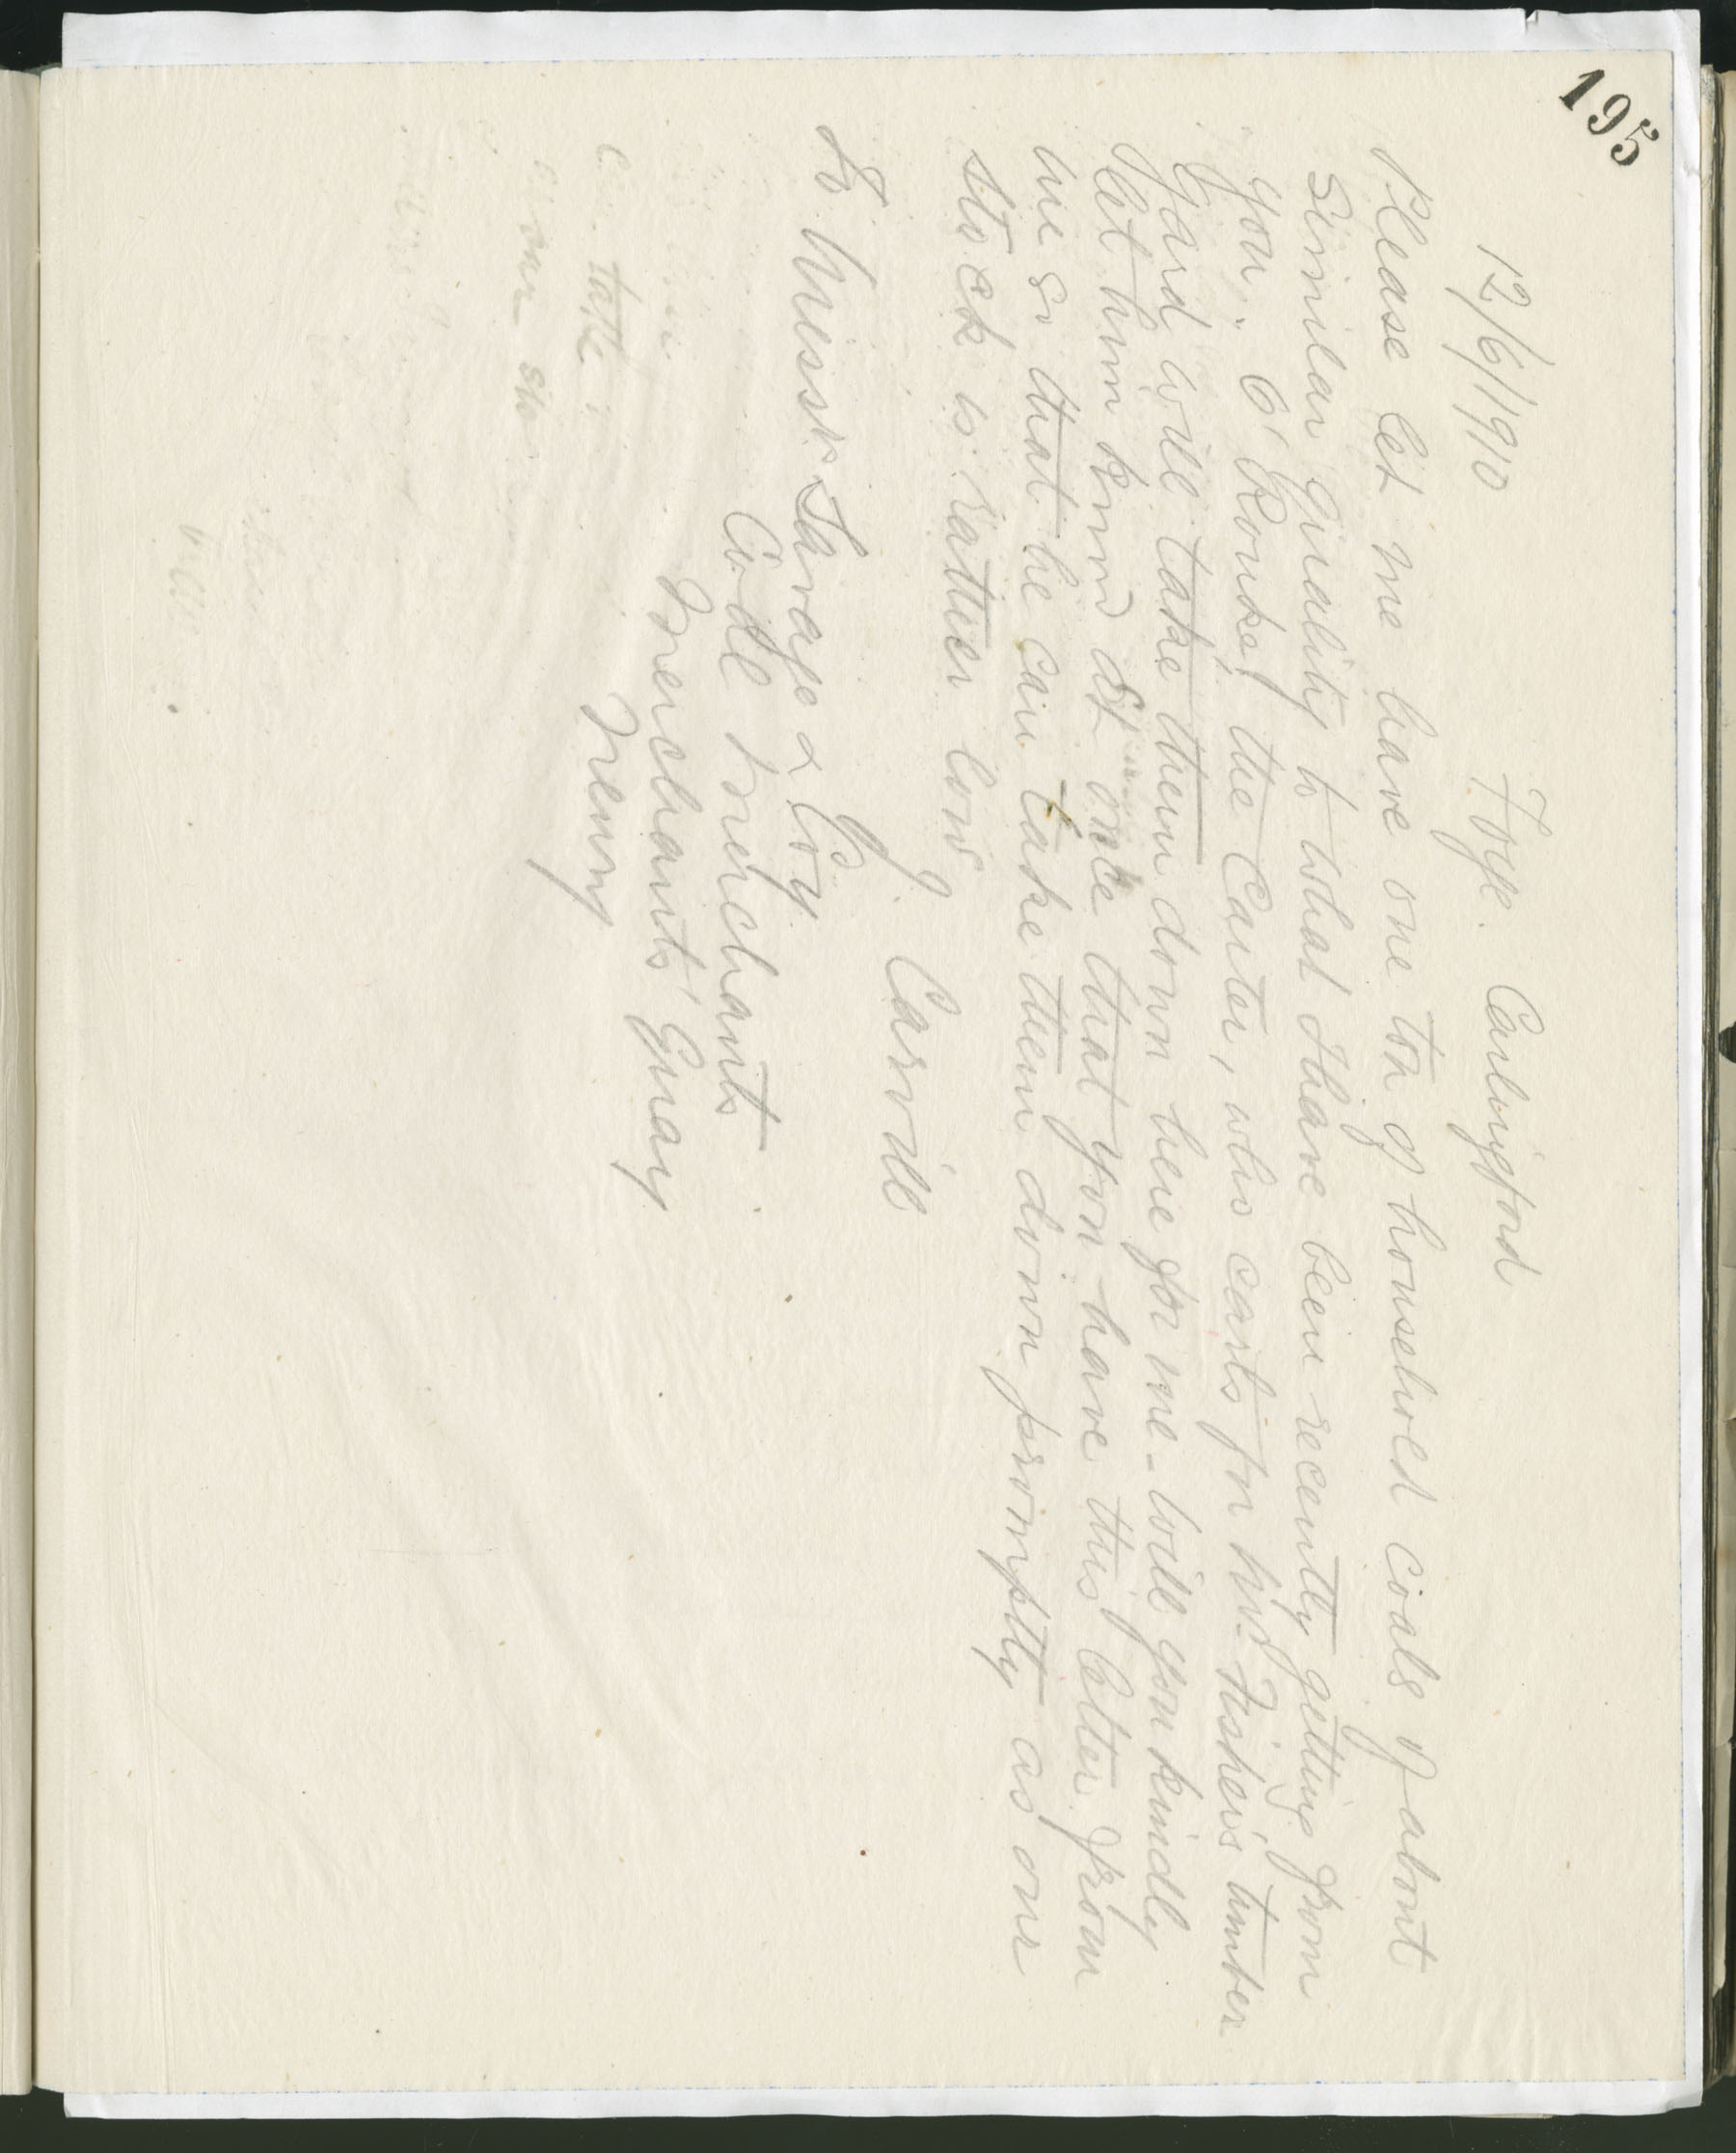 195
12/6/1910 Foye. Carlingford
Please let me have one ton of household coals of about
similar quality to what I have been recently getting from
you. O'Rourke, the Carter, who carts for Mr Fisher's timber
yard will take them down here for me - will you kindly
let him know at once that you have this letter from
me so that he can take them down promptly as our
stock is rather low
J. Carvill
To Messrs Savage & Coy.
Coal Merchants
Merchants' Quay
Newry